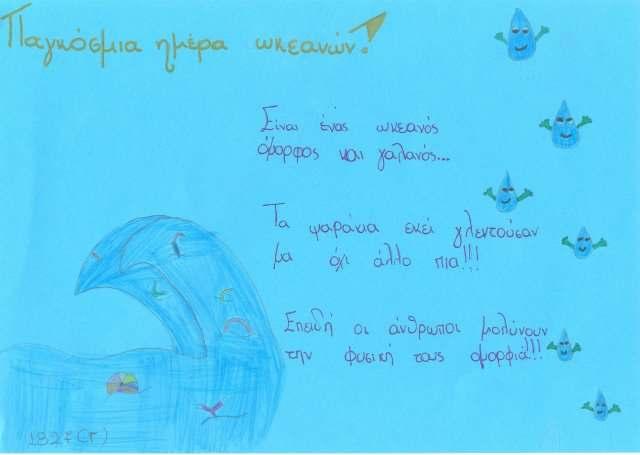 Παγκόσμια ημέρα ωκεανών!
Είναι ένας ωκεανός
όμορφος και γαλανός...
Τα ψαράκια εκεί γλεντούσαν
μα όχι άλλο πια!!!
Επειδή οι άνθρωποι μολύνουν
την φυσική τους ομορφιά!!!
1327(Γ)